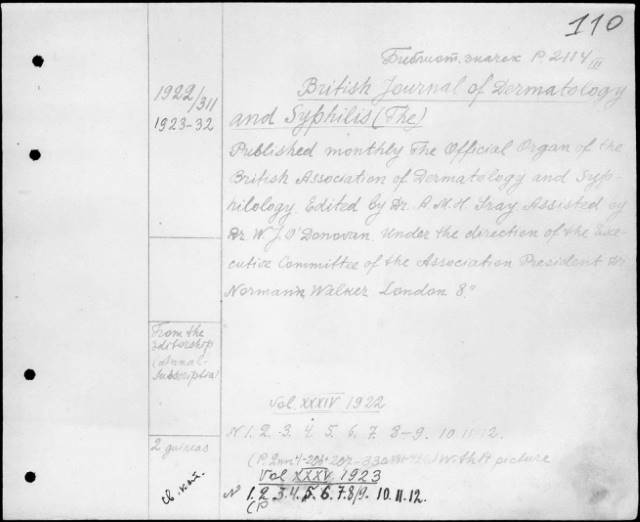 110
Библиот. значек P. 2114/III
1922/311
1923-32
British Journal of Dermatology
and Syphilis (The)
Published monthly The Official Organ of the
British Association of Dermatology and Syph-
ilology. Edited by Dr. A. M. H. Gray Assisted by
Dr. W. J. O'Donovan. Under the direction of the Exe-
cutive Committee of the Association President Dr
Normann Walker. London 8.°
From the
Editorship
(Annal-
Subscriptia)
2 guineas
св. кат.
Vol. XXXIV 1922
N 1. 2. 3. 4. 5. 6. 7. 8-9. 10. 11. 12.
With 14 picture
Vol XXXV 1923
N 1. 2. 3. 4. 5. 6. 7. 8/9. 10. 11. 12.
(P